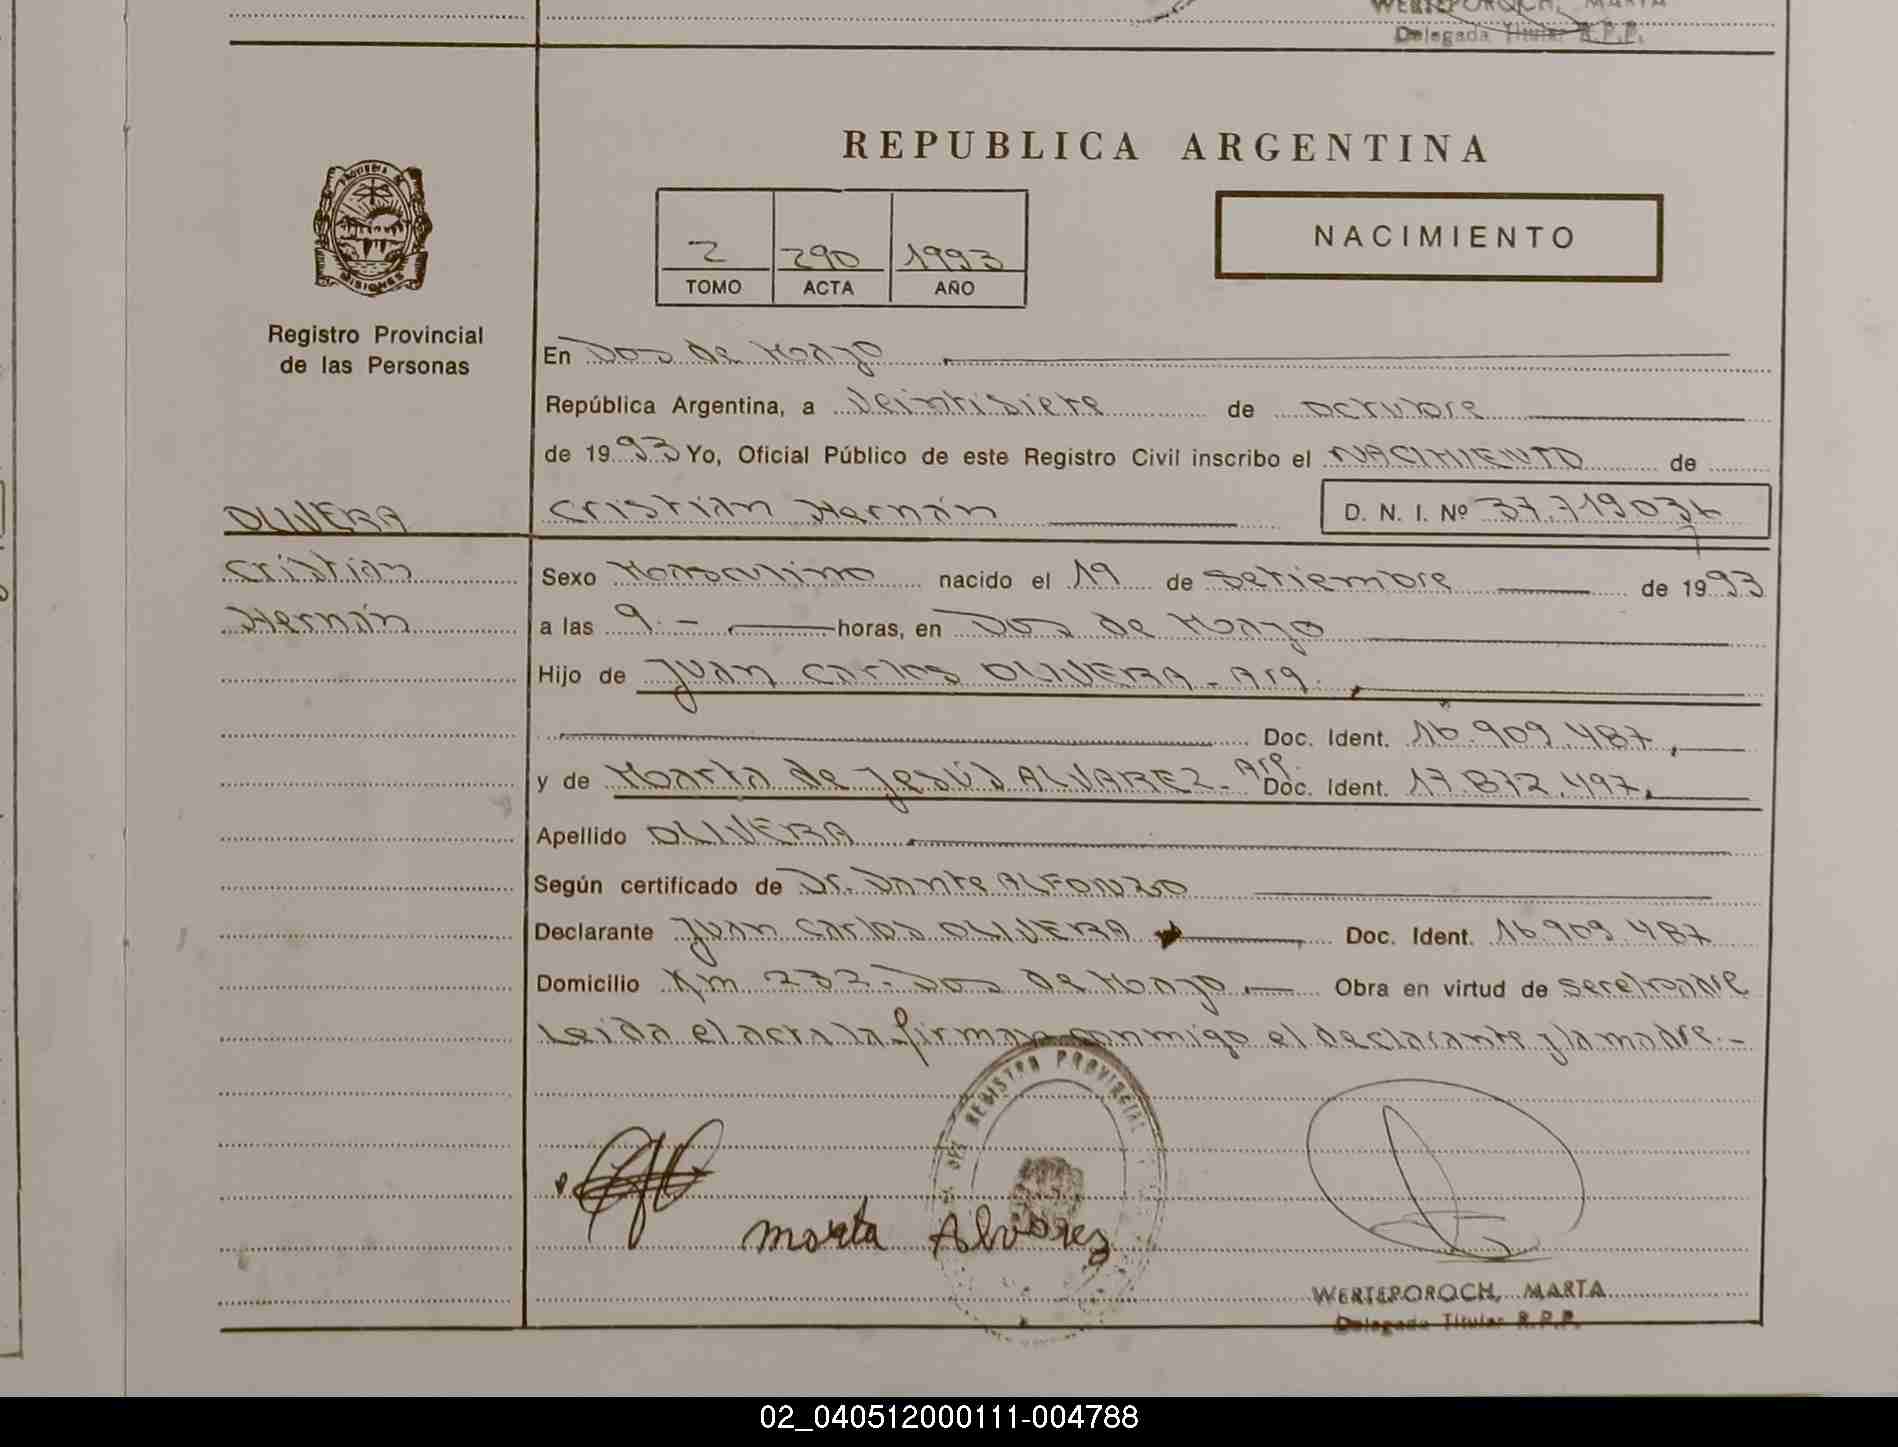 WERTEPOROCH, MARTA
Delegada Titular R.P.P.
REPUBLICA ARGENTINA
PROVINCIA DE MISIONES
2 290 1993
TOMO ACTA AÑO
NACIMIENTO
Registro Provincial
de las Personas
En Dos de Mayo
República Argentina, a Veintisiete de octubre
de 1993 Yo, Oficial Público de este Registro Civil inscribo el NACIMIENTO de
OLIVERA Cristian Hernán D. N. I. Nº
Cristian Sexo Masculino nacido el 19 de setiembre de 1993
Hernán a las 9.- horas, en Dos de Mayo
Hijo de Juan Carlos OLIVERA - Arg.
Doc. Ident. 16.909.487,
y de Marta de Jesús ALVAREZ - Arg. Doc. Ident. 17.872.497,
Apellido OLIVERA
Según certificado de Dr. Dante ALFONZO
Declarante Juan Carlos OLIVERA Doc. Ident. 16.909.487
Domicilio Km 232 - Dos de Mayo, Obra en virtud de ser el padre
Leida el acta la firman conmigo el declarante y la madre.-
REGISTRO PROVINCIAL
Marta Alvarez
WERTEPOROCH, MARTA
Delegada Titular R.P.P.
02_040512000111-004788